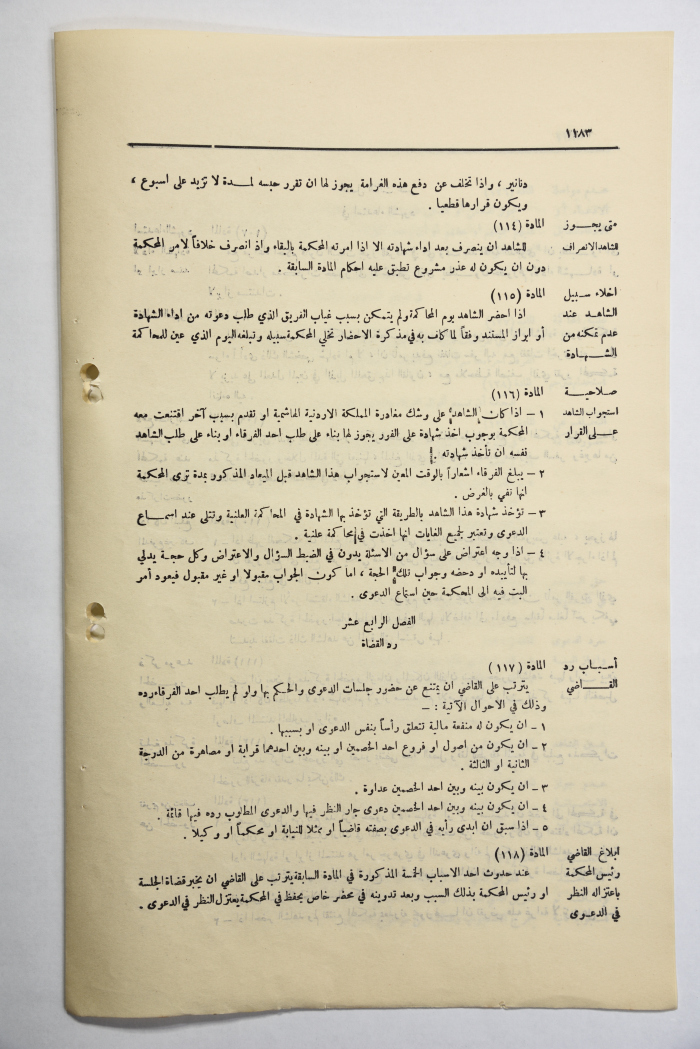 ١١٨٣
دنانير ، واذا تخلف عن دفع هذه الغرامة يجوز لها ان تقرر حبسه لمدة لا تزيد على اسبوع ،
ويكون قرارها قطعيا .
متى يجوز المادة (١١٤)
للشاهد الانصراف للشاهد ان ينصرف بعد اداء شهادته الا اذا امرته المحكمة بالبقاء واذ انصرف خلافاً لامر المحكمة
دون ان يكون له عذر مشروع تطبق عليه احكام المادة السابقة .
اخلاء سبيل المادة (١١٥)
الشاهد عند اذا احضر الشاهد يوم المحاكمة ولم يتمكن بسبب غياب الفريق الذي طلب دعوته من اداء الشهادة
عدم تمكنه من أو ابراز المستند وفقاً لما كلف به في مذكرة الاحضار تخلي المحكمة سبيله وتبلغه اليوم الذي عين للمحاكمة
الشهادة
صلاحية المادة (١١٦)
استجواب الشاهد ١ – اذا كان الشاهد على وشك مغادرة المملكة الاردنية الهاشمية او تقدم بسبب آخر اقتنعت معه
على القرار المحكمة بوجوب اخذ شهادة على الفور يجوز لها بناء على طلب احد الفرقاء او بناء على طلب الشاهد
نفسه ان تأخذ شهادته .
٢ – يبلغ الفرقاء اشعاراً بالوقت المعين لاستجواب هذا الشاهد قبل الميعاد المذكور بمدة ترى المحكمة
انها تفي بالغرض .
٣ – تؤخذ شهادة هذا الشاهد بالطريقة التي تؤخذ بها الشهادة في المحاكمة العلنية وتتلى عند استماع
الدعوى وتعتبر لجميع الغايات انها اخذت في محاكمة علنية .
٤ – اذا وجه اعتراض على سؤال من الاسئلة يدون في الضبط السؤال والاعتراض وكل حجة يدلي
بها لتأييده او دحضه وجواب تلك الحجة ، اما كون الجواب مقبولا او غير مقبول فيعود أمر
البت فيه الى المحكمة حين استماع الدعوى .
الفصل الرابع عشر
رد القضاة
أسباب رد المادة (١١٧)
القاضي يترتب على القاضي ان يمتنع عن حضور جلسات الدعوى والحكم بها ولو لم يطلب احد الفرقاء رده
وذلك في الاحوال الآتية : –
١ – ان يكون له منفعة مالية تتعلق رأساً بنفس الدعوى او بسببها .
٢ – ان يكون من اصول او فروع احد الخصمين او بينه وبين احدهما قرابة او مصاهرة من الدرجة
الثانية او الثالثة .
٣ – ان يكون بينه وبين احد الخصمين عداوة .
٤ – ان يكون بينه وبين احد الخصمين دعوى جار النظر فيها والدعوى المطلوب رده فيها قائمة .
٥ – اذا سبق ان ابدى رأيه في الدعوى بصفته قاضياً او ممثلا للنيابة او محكماً او وكيلا .
ابلاغ القاضي المادة (١١٨)
رئيس المحكمة عند حدوث احد الاسباب الخمسة المذكورة في المادة السابقة يترتب على القاضي ان يخبر قضاة الجلسة
باعتزاله النظر او رئيس المحكمة بذلك السبب وبعد تدوينه في محضر خاص يحفظ في المحكمة يعتزل النظر في الدعوى .
في الدعوى